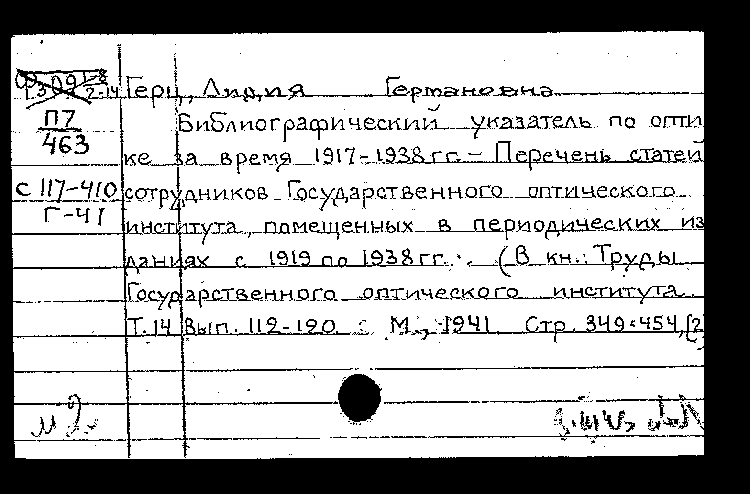 Герц, Лидия Германовна
П7
463
Библиографический указатель по опти
ке за время 1917-1938 гг. - Перечень статей
С 117-410
сотрудников Государственного оптического
Г-41
института, помещенных в периодических из
даниях с 1919 по 1938 гг. (В кн.: Труды
Государственного оптического института
Т. 14 Вып. 112-120. М., 1941 Стр. 349-454, [2]